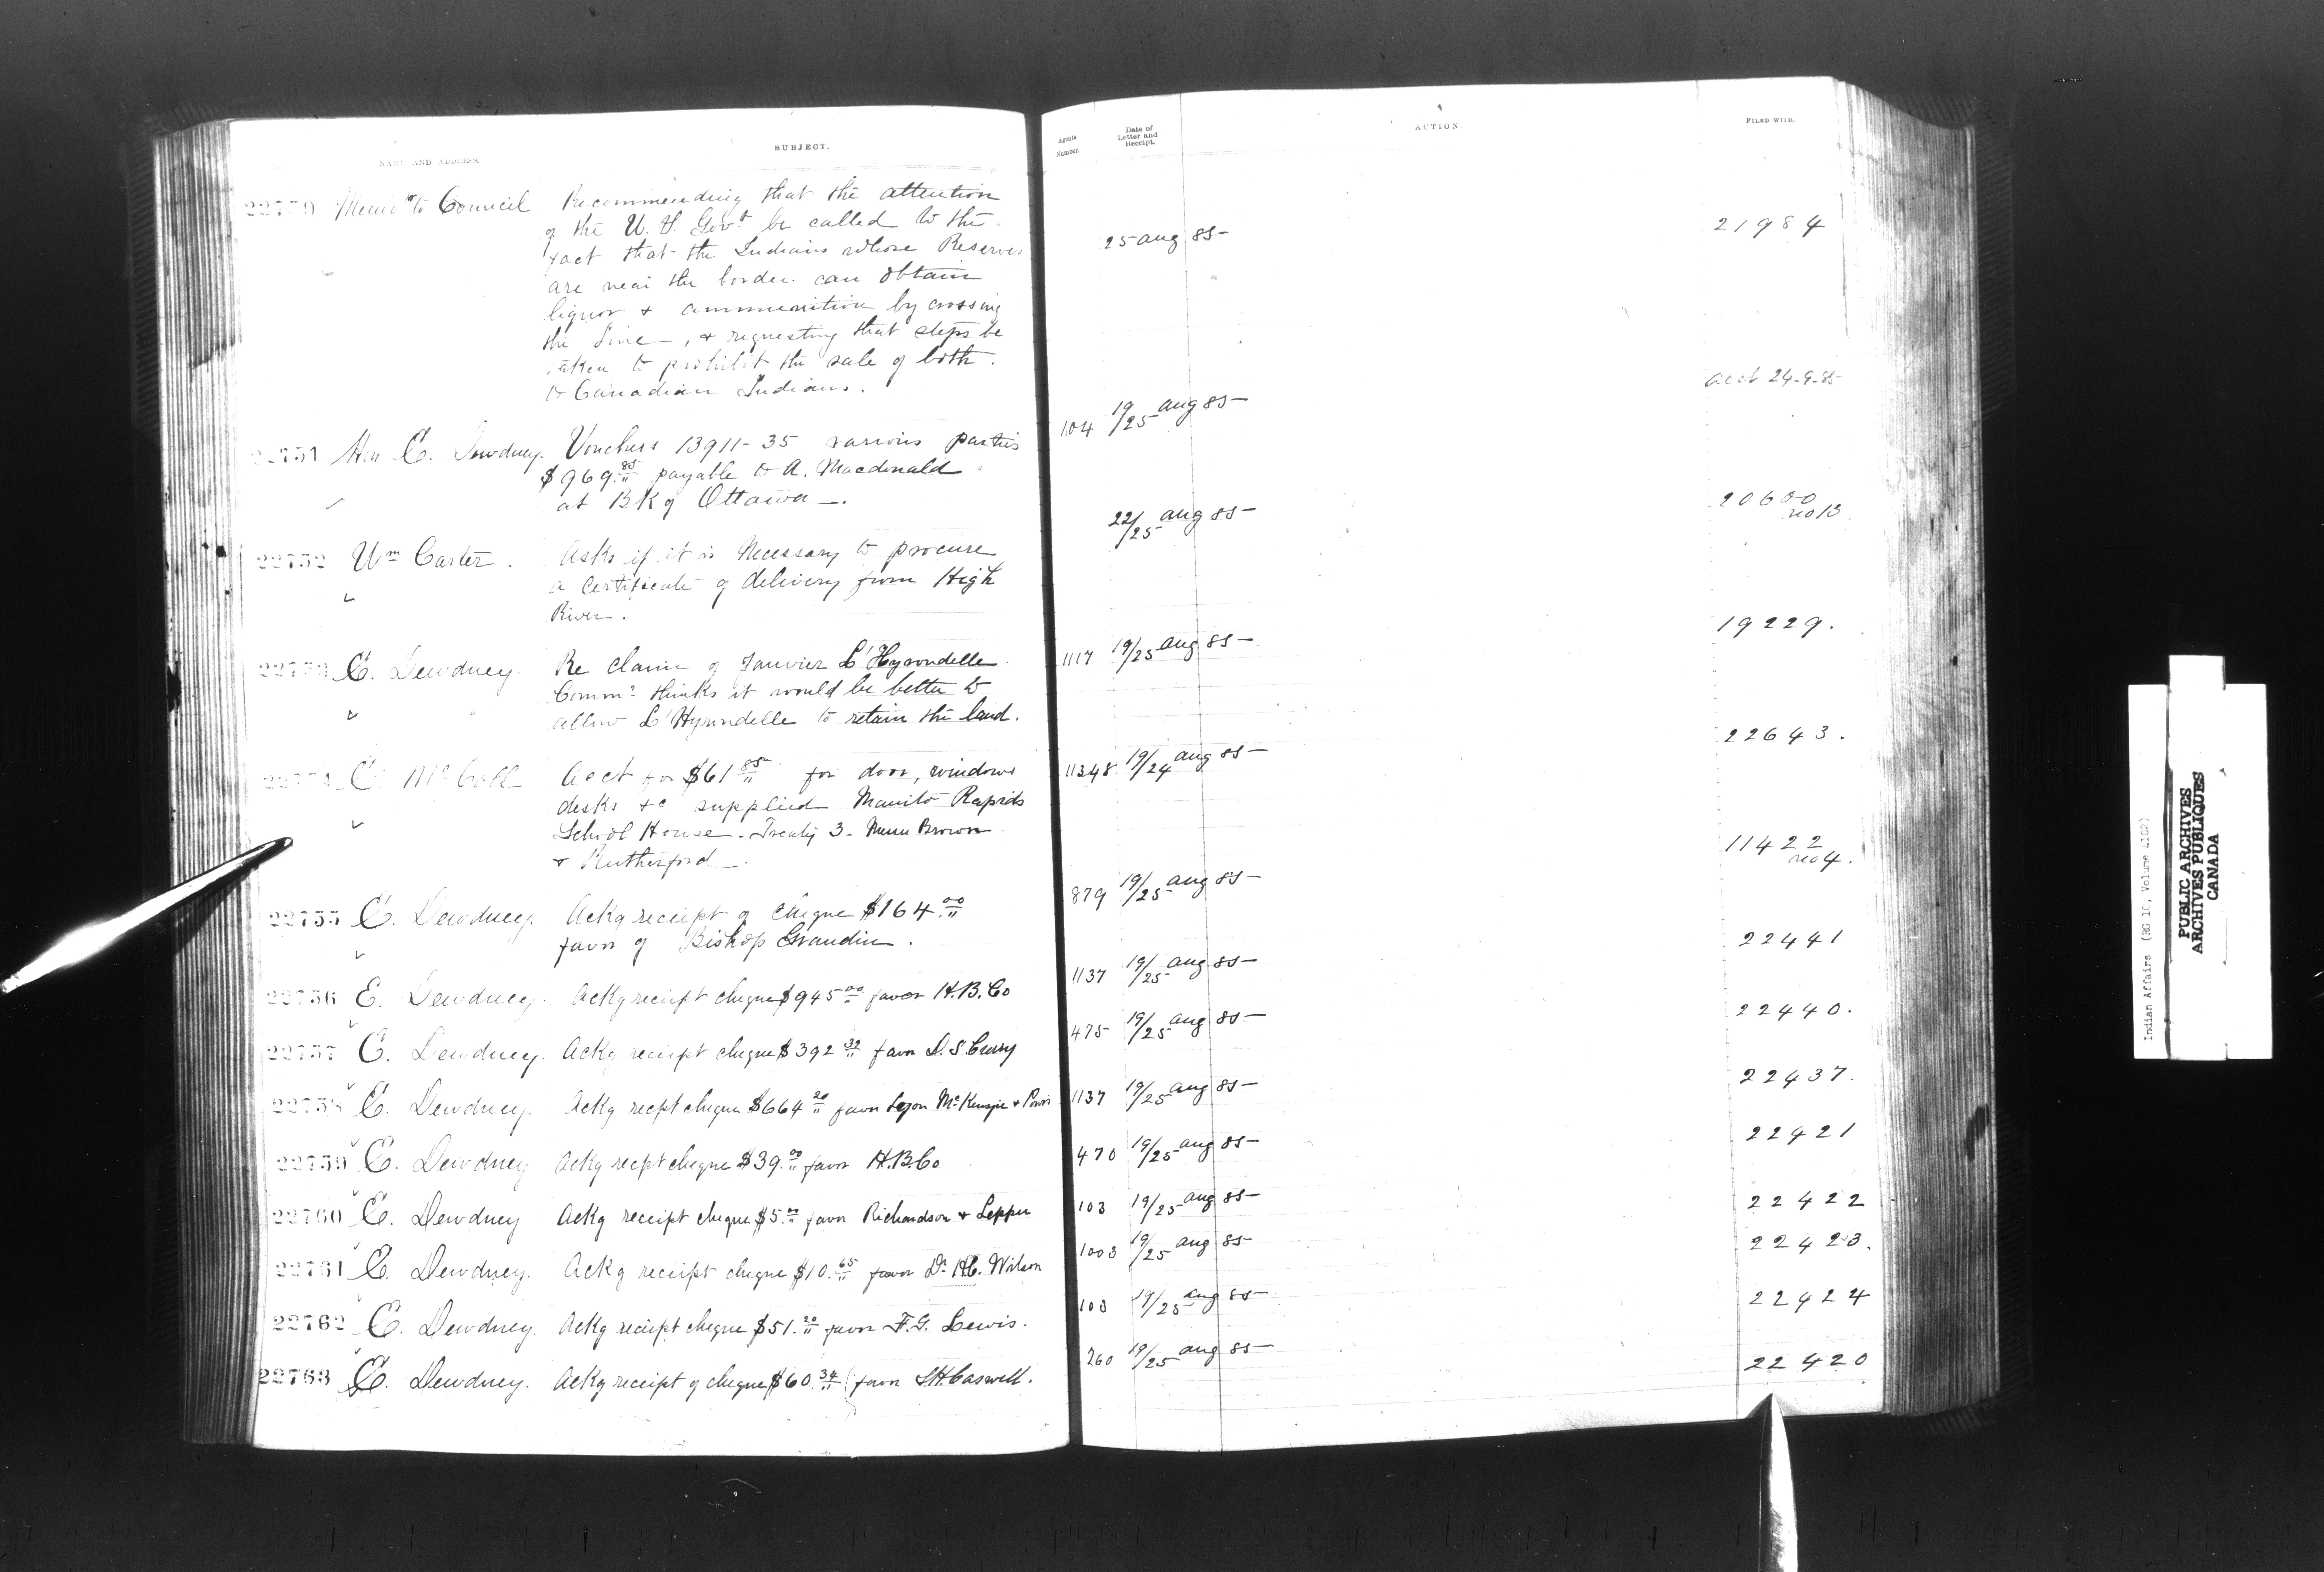 NAME AND ADDRESS.
SUBJECT.
Agents Number.
Date of Letter and Receipt.
ACTION
FILED WITH.
22750 Memo to Council Recommending that the attention
of the U. S. Govt be called to the
fact that the Indians whose Reserves
are near the border can obtain
liquor & ammunition by crossing
the Line, & requesting that steps be
taken to prohibit the sale of both
to Canadian Indians.
25 Aug 85
21984
22751 Hon E. Dewdney. Vouchers 13911-35 various parties
$969.85 payable to A. Macdonald
at Bk of Ottawa.
104 19/25 Aug 85
acct 24-9-85
22752 Wm Carter. Asks if it is Necessary to procure
a Certificate of delivery from High
River.
22/25 Aug 85
20600
no 13
22753 E. Dewdney. Re Claim of Janvier L'Hyrondelle
Commr thinks it would be better to
allow L'Hyrondelle to retain the land.
1117 19/25 Aug 85
19229.
22754 E. McColl Acct for $61.85 for door, windows
desks &c supplied Manito Rapids
School House. Treaty 3. Brown
& Rutherford.
11348 19/24 Aug 85
22643.
22755 E. Dewdney. Ackg receipt of cheque $164.00
favor of Bishop Grandin.
879 19/25 Aug 85
11422
no 4.
22756 E. Dewdney. Ackg receipt cheque $945.00 favor H.B.Co
1137 19/25 Aug 85
22441
22757 E. Dewdney. Ackg receipt cheque $392.32 favor D.S. Curry
475 19/25 Aug 85
22440.
22758 E. Dewdney. Ackg recpt cheque $664.20 favor Lyon McKenzie & Powis
1137 19/25 Aug 85
22437.
22759 E. Dewdney Ackg recpt cheque $39.00 favor H.B.Co
470 19/25 Aug 85
22421
22760 E. Dewdney Ackg receipt cheque $5.00 favor Richardson &
103 19/25 Aug 85
22422
22761 E. Dewdney. Ackg receipt cheque $10.65 favor Dr H.C. Wilson
1003 19/25 Aug 85
22423.
22762 E. Dewdney. Ackg receipt cheque $51.20 favor F.G. Lewis.
103 19/25 Aug 85
22424
22763 E. Dewdney. Ackg receipt of cheque $60.34 favor Caswell.
260 19/25 Aug 85
22420
Indian Affairs (RG 10, Volume 4102)
PUBLIC ARCHIVES
ARCHIVES PUBLIQUES
CANADA